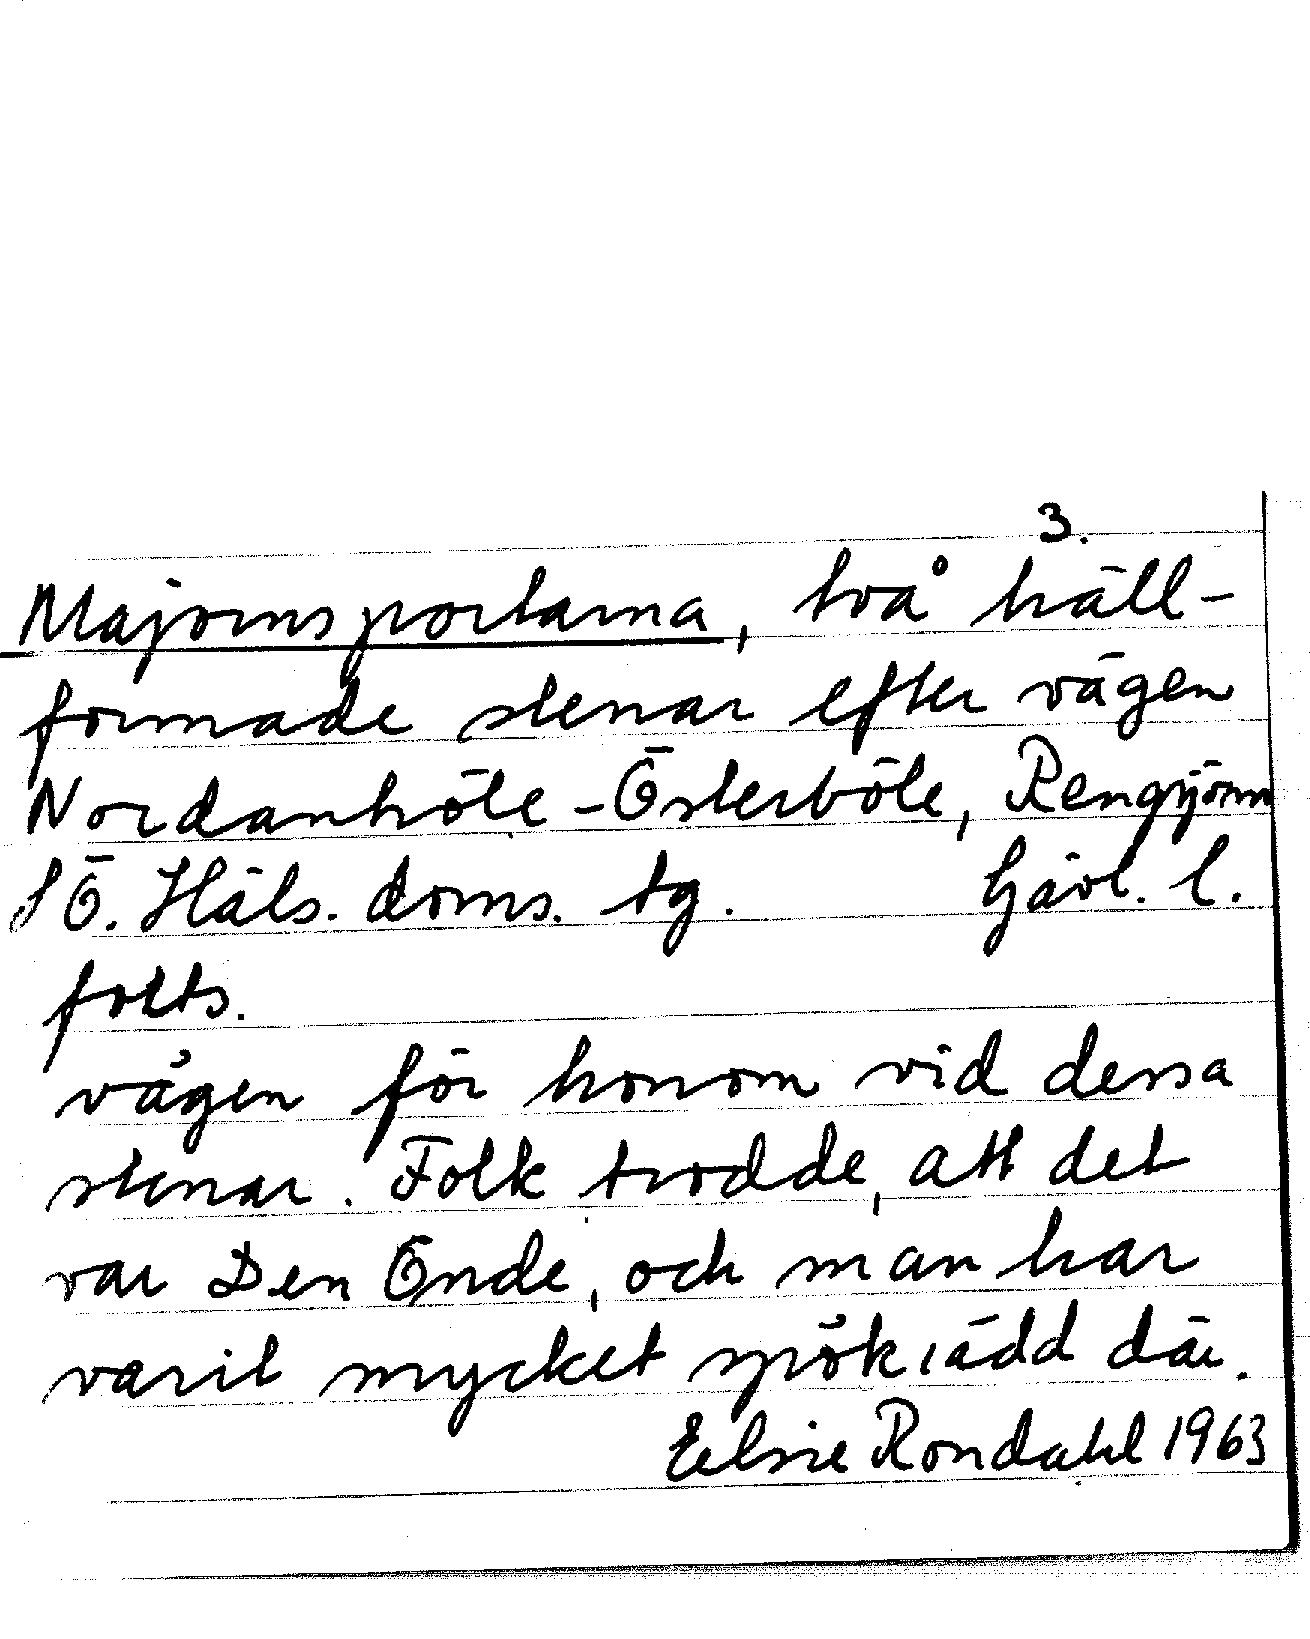 3.
Majornsportarna, två häll-
formade stenar efter vägen
Nordanhöle-Österböle, Rengsjösn
SÖ. Häls. doms. tg. Gävl. l.
forts.
vägen för honom vid dessa
stenar. Folk trodde, att det
var Den Onde, och man har
varit mycket spökrädd där.
Elsie Rondahl 1963